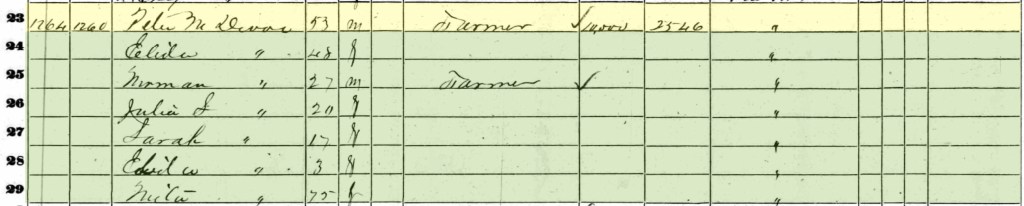 23 1264 1260 Peter M Devoe 53 m Farmer 10,000 2546 "
24 Elida " 48 f "
25 Norman " 27 m Farmer "
26 Julia " 20 f "
27 Sarah " 17 f "
28 " 3 f "
29 " 75 f "